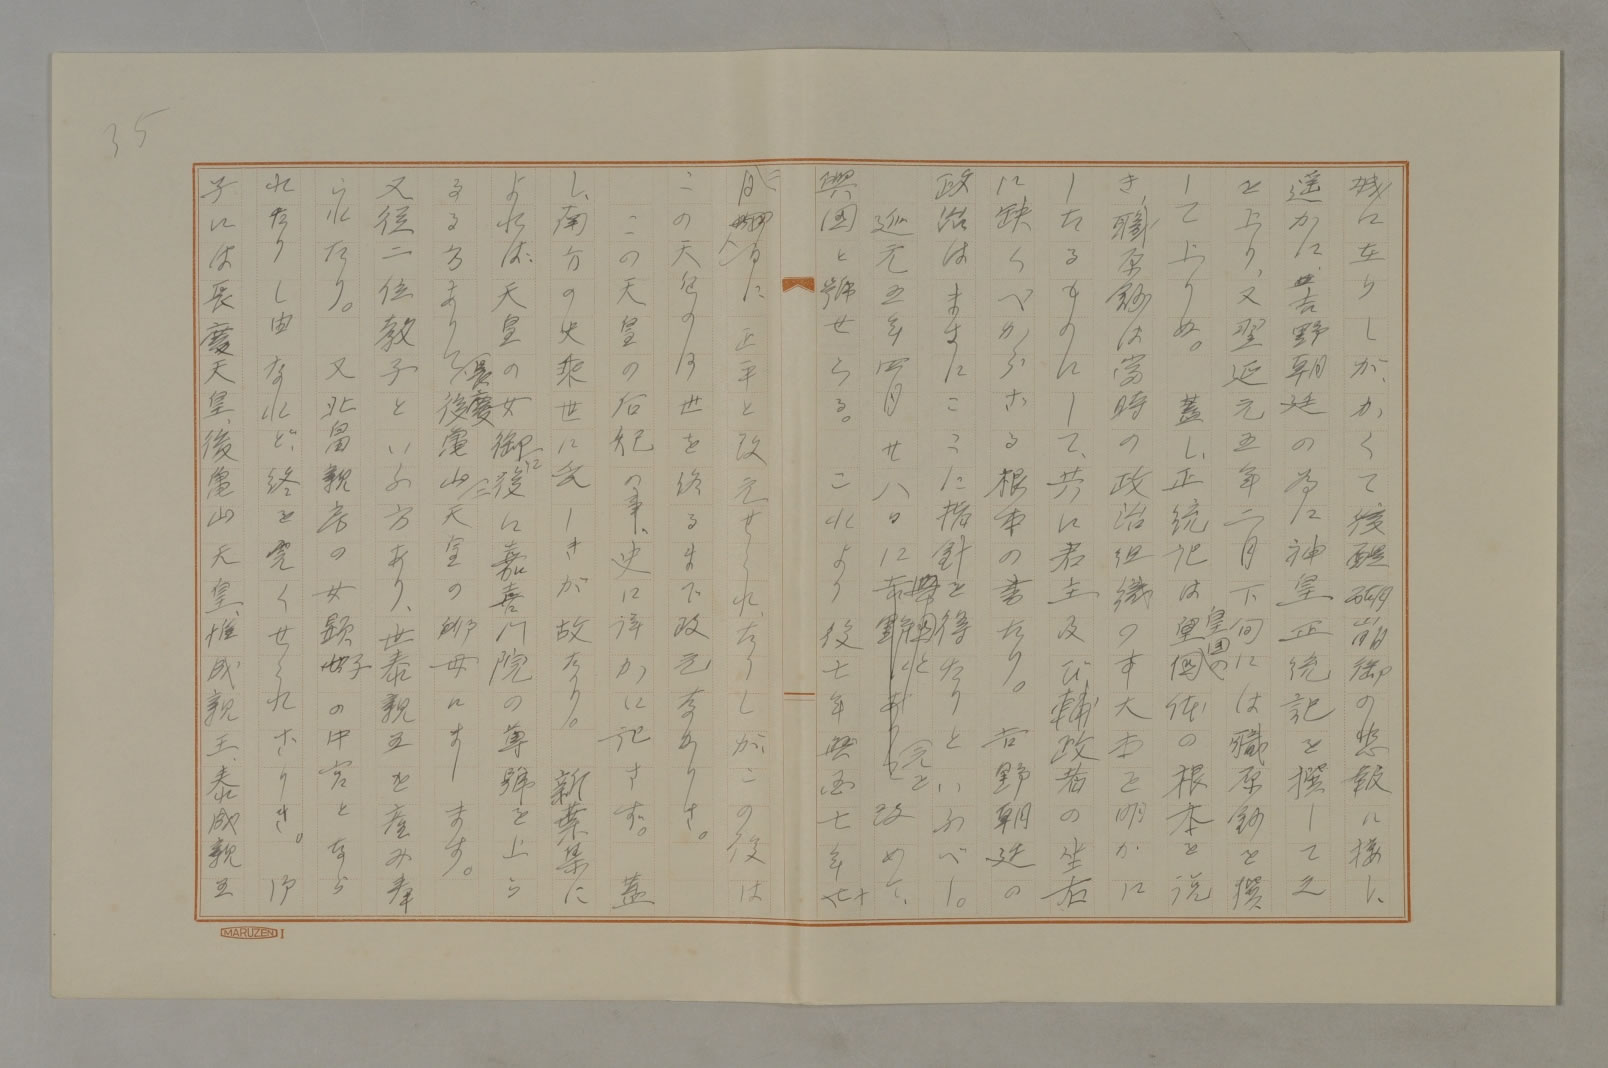 35
城に在りしが、かくて後醍醐崩御の悲報に接し、
遥かに吉野朝廷の為に神皇正統記を撰して之
を上り、又翌延元五年二月下旬には職原鈔を撰
して上りぬ。蓋し、正統記は皇国の國体の根本を説
き、職原鈔は當時の政治組織の大本を明かに
したるものにして、共に君主及び輔政者の坐右
に缺くべからざる根本の書たり。吉野朝廷の
政治はまさにここに指針を得たりといふべし。
延元五年四月廿八日に興國と改めて、
興国と號せらる。これより後七年興国七年
月に正平と改元せられたりしが、この後は
この天皇の御世を終るまで改元なかりき。
この天皇の后妃の事、史に詳かに記さず。蓋
し、南方の史乘世に乏しきが故なり。新葉集に
よれば、天皇の女御後に嘉喜門院の尊號を上ら
るる方ありて、長慶後亀山天皇の御母にまします。
又従二位教子といふ方あり、世泰親王を産み奉
られたり。又北畠親房の女顕子の中宮となら
れたりし由なれど、終を完くせられざりき。御
子には長慶天皇、後亀山天皇、惟成親王、泰成親王
MARUZEN 1